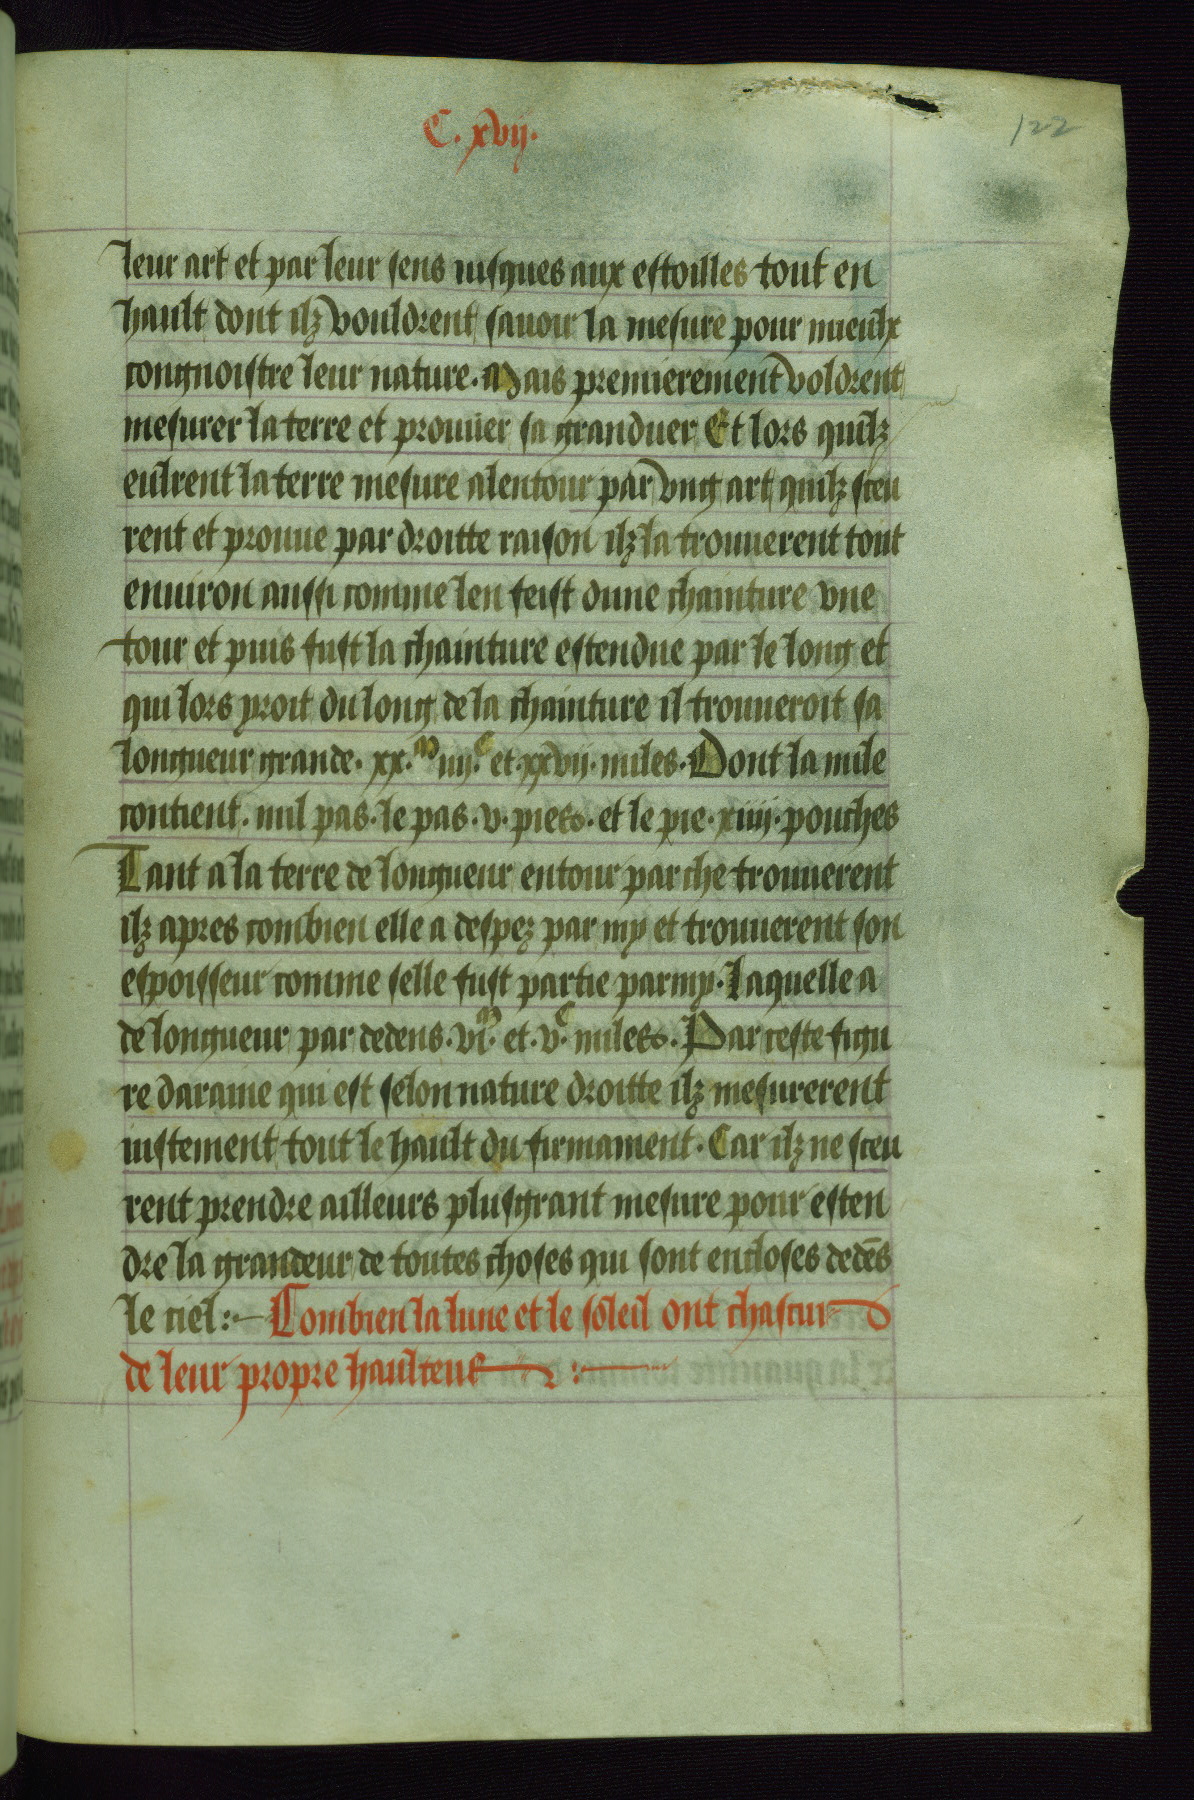 C. xvij.
122
leur art et par leur sens iusques aux estoilles tout en
hault dont ilz vouldrent sauoir la mesure pour mieulx
congnoistre leur nature. Mais premierement voldrent
mesurer la terre et prouuer sa granduer Et lors quilz
eulrent la terre mesure alentour par vng art quilz sceu
rent et prouue par droitte raison ilz la trouuerent tout
enuiron aussi comme len feist dune chainture vne
tour et puis fust la chainture estendue par le long et
qui lors yroit du long de la chainture il trouueroit sa
longueur grande. xx.ᵐ iiij.ᶜ et. xxvij. miles. Dont la mile
contient. mil pas. le pas. v. pies. et le pie. xiiij. pouches
Tant a la terre de longueur entour par che trouuerent
ilz apres combien elle a despez par my et trouuerent son
espoisseur comme selle fust partie parmy. Laquelle a
de longueur par dedens. vi.ᵐ et. v.ᶜ miles. Par ceste figu
re daraine qui est selon nature droitte ilz mesurerent
iustement tout le hault du firmament. Car ilz ne sceu
rent prendre ailleurs plusgrant mesure pour esten
dre la grandeur de toutes choses qui sont encloses dedēs
le ciel:- Combien la lune et le soleil ont chascun
de leur propre haulteur